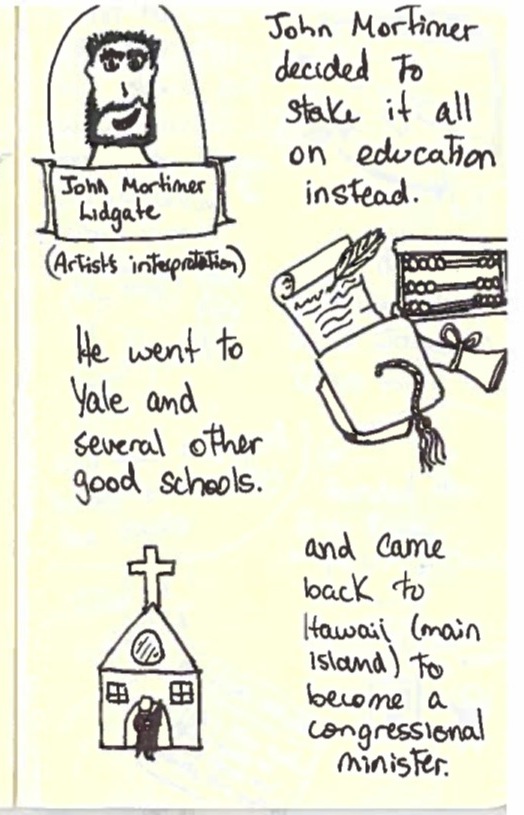 John Mortimer
Lidgate
(Artist's interpretation)
John Mortimer
decided to
stake it all
on education
instead.
He went to
Yale and
several other
good schools.
and came
back to
Hawaii (main
island) to
become a
congressional
minister.